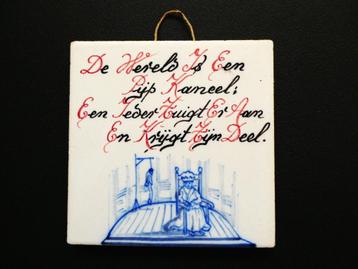 De Wereld Is Een
Pijp Kaneel;
Een Ieder Zuigt Er Aan
En Krijgt Zijn Deel.